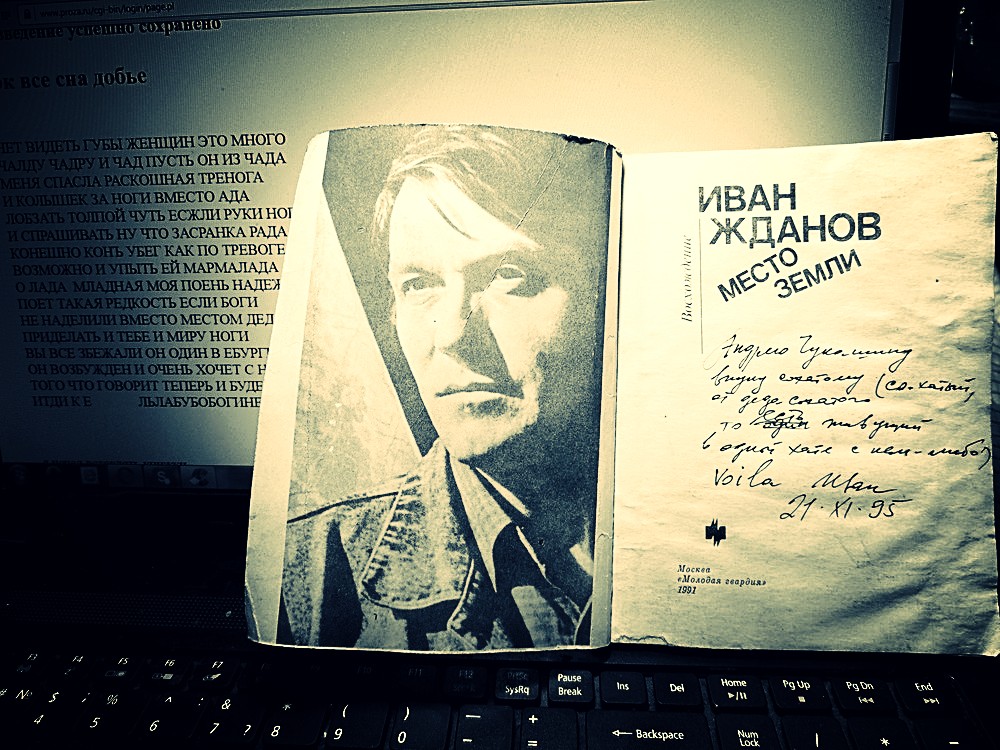 www.proza.ru/cgi-bin/login/page.pl
зведение успешно сохранено
ок все сна добье
ЧЕТ ВИДЕТЬ ГУБЫ ЖЕНЩИН ЭТО МНОГО
ЧАЛДУ ЧАДРУ И ЧАД ПУСТЬ ОН ИЗ ЧАДА
МЕНЯ СПАСЛА РАСКОШНАЯ ТРЕНОГА
И КОЛЫШЕК ЗА НОГИ ВМЕСТО АДА
ЛОБЗАТЬ ТОЛПОЙ ЧУТЬ ЕСЖЛИ РУКИ НОГ
И СПРАШИВАТЬ НУ ЧТО ЗАСРАНКА РАДА
КОНЕШНО КОНЬ УБЕГ КАК ПО ТРЕВОГЕ
ВОЗМОЖНО И УПЫТЬ ЕЙ МАРМАЛАДА
О ЛАДА МЛАДНАЯ МОЯ ПОЕНЬ НАДЕЖ
ПОЕТ ТАКАЯ РЕДКОСТЬ ЕСЛИ БОГИ
НЕ НАДЕЛИЛИ ВМЕСТО МЕСТОМ ДЕД
ПРИДЕЛАТЬ И ТЕБЕ И МИРУ НОГИ
ВЫ ВСЕ ЗБЕЖАЛИ ОН ОДИН В ЕБУРГ
ОН ВОЗБУЖДЕН И ОЧЕНЬ ХОЧЕТ С Н
ТОГО ЧТО ГОВОРИТ ТЕПЕРЬ И БУДЕ
ИТДИ К Е ЛЬЛАБУБОБОГИНЕ
ИВАН
ЖДАНОВ
МЕСТО
ЗЕМЛИ
Восхождение
Андрею
внуку сохатому (со-хатый,
от деда сохатого
то есть живущий
в одной хате с кем-либо)
Voila Иван
21·XI·95
Москва
«Молодая гвардия»
1991
F3 F4 F5 F6 F7 F11 F12 SysRq Pause Break Ins Del Home Pg Up Pg Dn End
# № $ ; % ^ : & ? * ( ) — +
4 5 6 7 8 9 0 - = Backspace Num Lock / * -